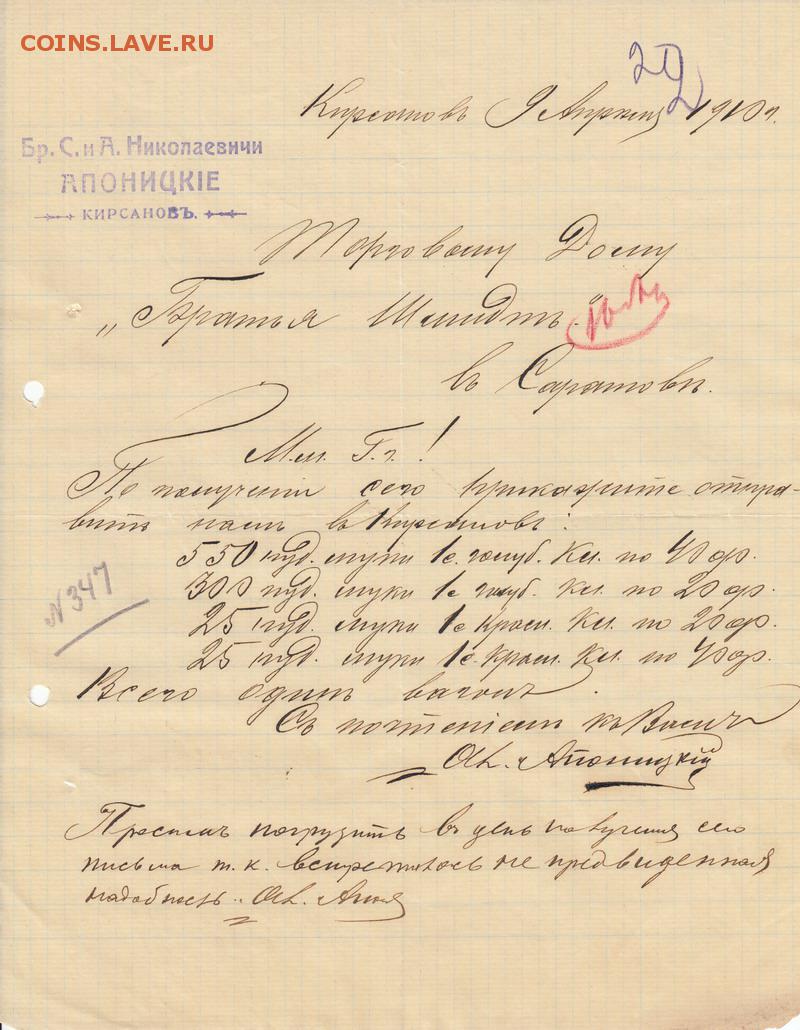 COINS.LAVE.RU
Кирсановъ 9 Апреля 1910 г.
Бр. С. и А. Николаевичи
АПОНИЦКІЕ
КИРСАНОВЪ.
Торговому Дому
„Братья Шмидтъ."
въ Саратовѣ.
М.м. Г.г.!
По полученіи сего прикажите отпра-
вить намъ въ Кирсановъ:
550 пуд. муки 1с. голуб. Кл. по 40 ф.
300 пуд. муки 1с. голуб. Кл. по 20 ф.
25 пуд. муки 1с. красн. Кл. по 20 ф.
25 пуд. муки 1с. красн. Кл. по 40 ф.
N 347
Всего одинъ вагонъ.
Съ почтеніемъ къ Вамъ
Ал. Апоницкій
Просимъ погрузить въ день получения сего
письма т. к. встретилось не предвиденная
надобность. Ал. Апон